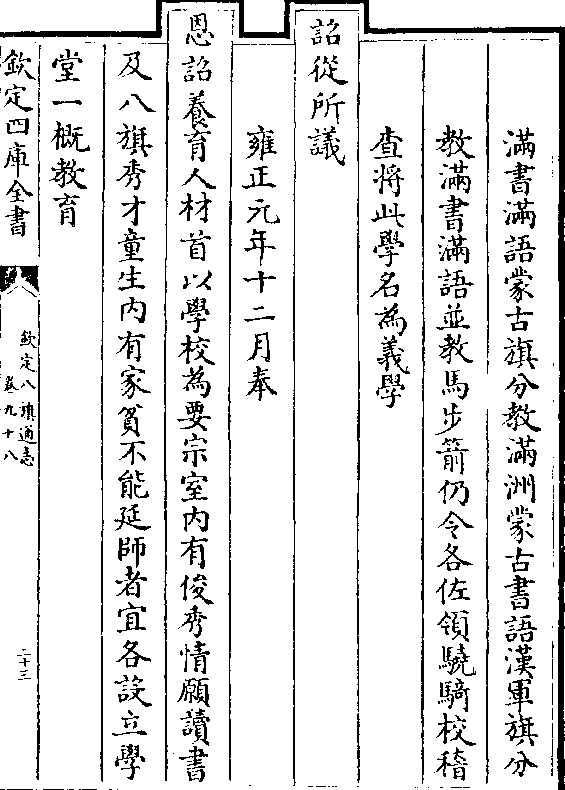 滿書滿語蒙古旗分教滿洲蒙古書語漢軍旗分
教滿書滿語並教馬步箭仍令各佐領驍騎校稽
查將此學名為義學
詔從所議
雍正元年十二月奉
恩詔養育人材首以學校為要宗室內有俊秀情願讀書
及八旗秀才童生內有家貧不能延師者宜各設立學
堂一概教育
欽定四庫全書
欽定八旗通志
卷九十八
二十三